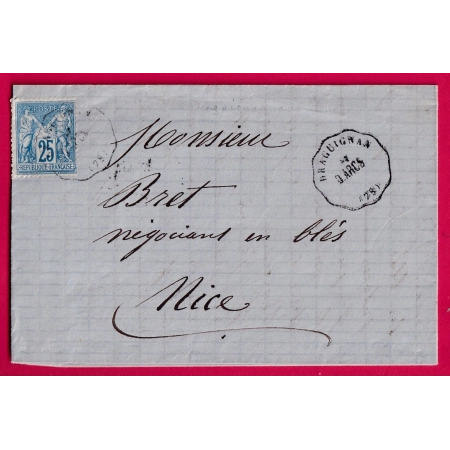 POSTES
25
REPUBLIQUE FRANÇAISE
Monsieur
Bret
négociant en blés
Nice
DRAGUIGNAN
D.ARCS